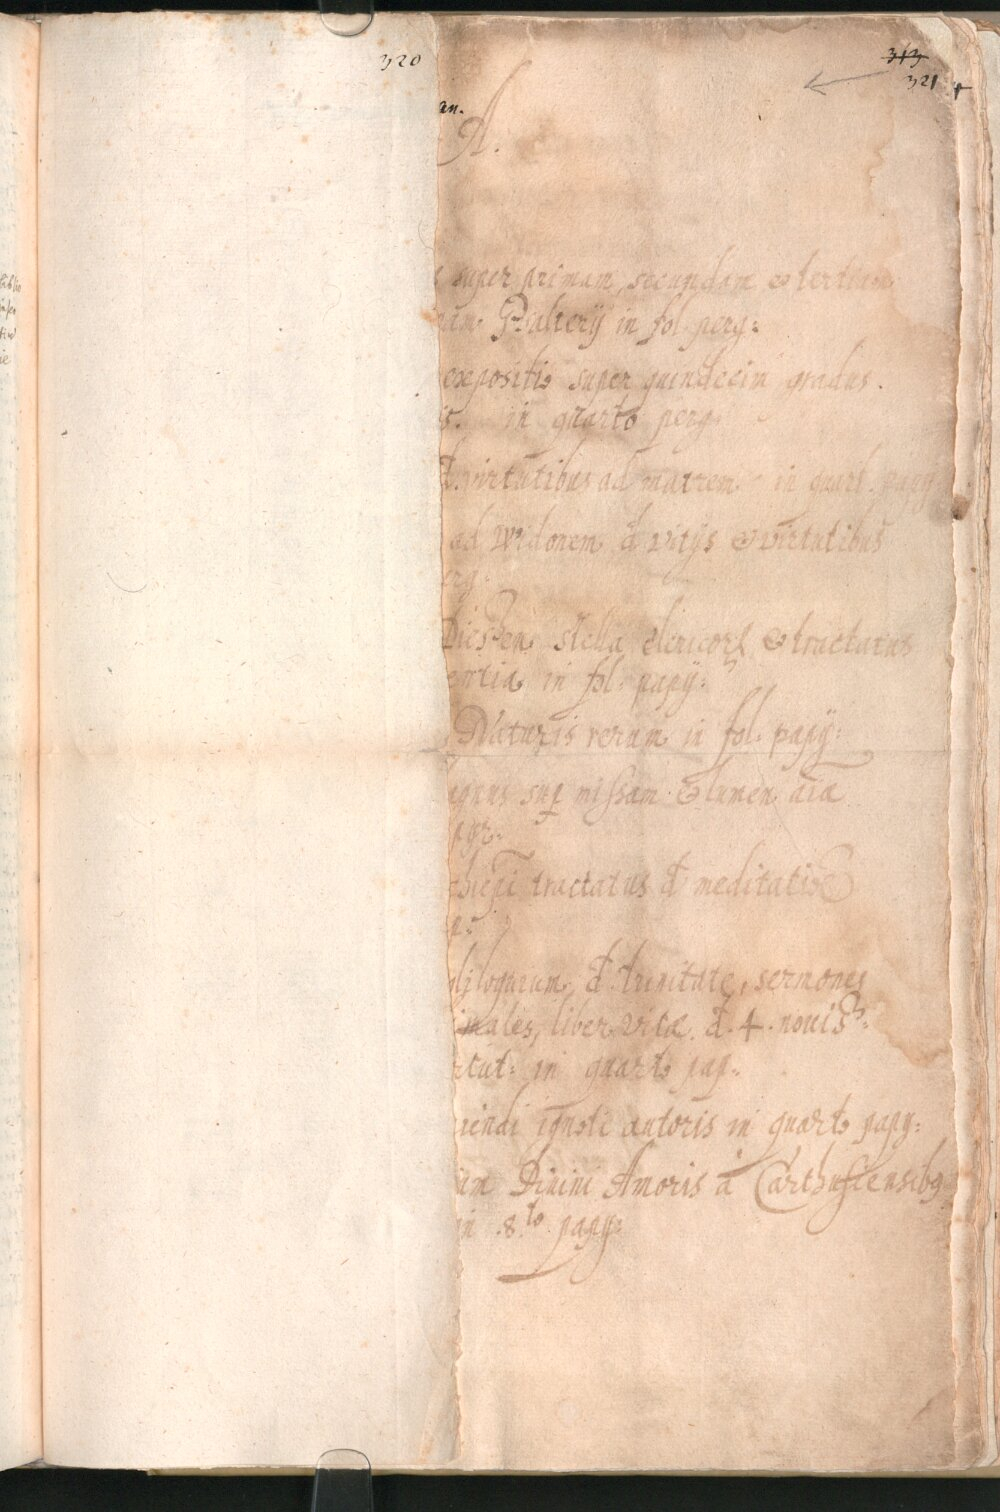 320
313
321
an.
A.
super primam secundam & tertiam
nam Psalterÿ in fol perg:
expositio super quindecim gradus.
in quarto perg
đ. virtutibus ad matrem in quart. papy
ad Widonem đ vitÿs & virtutibus
erg:
stella clericorꝝ & tractatus
in fol. papÿ:
Naturis rerum in fol. papÿ:
agnus suꝑ missam & lumen aīæ
tractatus đ meditatiōe
đ trinitate, sermones
ales, liber vitæ. đ. 4. nouiss:
rtut: in quarto pap:
iendi ignoti autoris in quarto papy:
um Diuini Amoris à Carthusiensibꝰ
in .8.to papy: